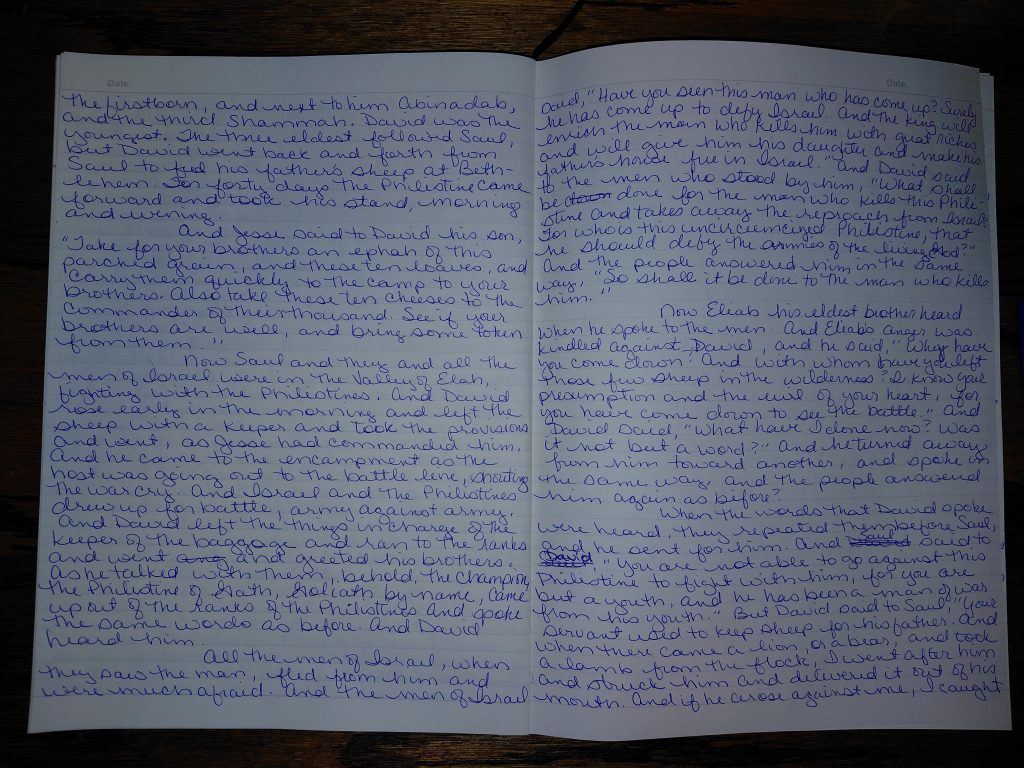 Date:
the firstborn, and next to him Abinadab,
and the third Shammah. David was the
youngest. The three eldest followed Saul,
but David went back and forth from
Saul to feed his father's sheep at Beth-
lehem. For forty days the Philistine came
forward and took his stand, morning
and evening.
And Jesse said to David his son,
"Take for your brothers an ephah of this
parched grain, and these ten loaves, and
carry them quickly to the camp to your
brothers. Also take these ten cheeses to the
commander of their thousand. See if your
brothers are well, and bring some token
from them."
Now Saul and they and all the
men of Israel were in the Valley of Elah,
fighting with the Philistines. And David
rose early in the morning and left the
sheep with a keeper and took the provisions
and went, as Jesse had commanded him.
And he came to the encampment as the
host was going out to the battle line, shouting
the war cry. And Israel and the Philistines
drew up for battle, army against army.
And David left the things in charge of the
keeper of the baggage and ran to the ranks
and went and greeted his brothers.
As he talked with them, behold, the champion,
the Philistine of Gath, Goliath by name, came
up out of the ranks of the Philistines and spoke
the same words as before. And David
heard him.
All the men of Israel, when
they saw the man, fled from him and
were much afraid. And the men of Israel
Date:
said, "Have you seen this man who has come up? Surely
he has come up to defy Israel. And the king will
enrich the man who kills him with great riches
and will give him his daughter and make his
father's house free in Israel." And David said
to the men who stood by him, "What shall
be done for the man who kills this Phili-
stine and takes away the reproach from Israel?
For who is this uncircumcized Philistine, that
he should defy the armies of the living God?"
And the people answered him in the same
way, "So shall it be done to the man who kills
him."
Now Eliab his eldest brother heard
when he spoke to the men. And Eliab's anger was
kindled against David, and he said, "Why have
you come down? And with whom have you left
those few sheep in the wilderness? I know your
presumption and the evil of your heart, for
you have come down to see the battle." And
David said, "What have I done now? Was
it not but a word?" And he turned away
from him toward another, and spoke in
the same way, and the people answered
him again as before?
When the words that David spoke
were heard, they repeated them before Saul,
and he sent for him. And Saul said to
David, "You are not able to go against this
Philistine to fight with him, for you are
but a youth, and he has been a man of war
from his youth." But David said to Saul, "Your
servant used to keep sheep for his father. And
when there came a lion, or a bear, and took
a lamb from the flock, I went after him
and struck him and delivered it out of his
mouth. And if he arose against me, I caught